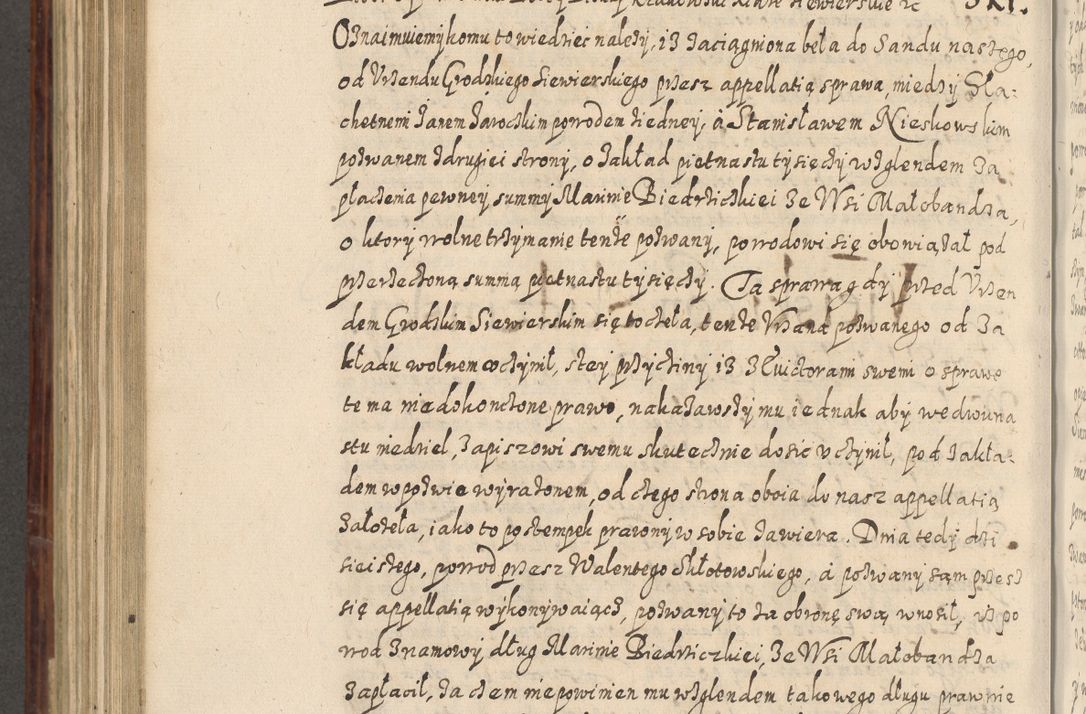 Oznaimuiemy komu to wiedziec nalezy, iż zaciągniona beła do Sandu naszego,
od Vrzendu Grodzkiego Siewierskiego przesz appellatią sprawa, miedzy Sla-
chetnemi Janem Jarockim powodem z iedney, á Stanisławem Nieskowskim
pozwanem z drugiei strony, o zakład pietnastu tysięcy wzglendem za
płaczenia pewney summy Marinie Biedrziczkiei ze Wsi Małobandza,
o ktory wolne trzymanie tenże pozwany, powodowi się obowiązał pod
przerzeczoną summą pietnastu tysięcy. Ta sprawa gdy przed Vrzen
dem Grodzkim Siewierskim się toczeła, tenże Vrzand pozwanego od za
kładu wolnem vczynił, z tey przyczyny iż z Euictorami swemi o sprawe
te ma niedokonczone prawo, nakazawszy mu iednak aby we dwuna
stu niedziel, zapiszowi swemu skutecznie dosic vczynił, pod zakła-
dem w pozwie wyrażonem, od czego strona oboia do nasz appellatią
założeła, iako to postempek prawny w sobie zawiera. Dnia tedy dzi
sieiszego, powod przesz Walentego Skłotowskiego, á pozwany sam przesz
się appellatią wykonywaiącz, pozwany to za obronę swą wnosił, iż po
wod z namowy dług Marinie Biedrziczkiei, ze Wsi Małobandza
zapłacił, za czem niepowinien mu wzglendem takowego długu prawnie